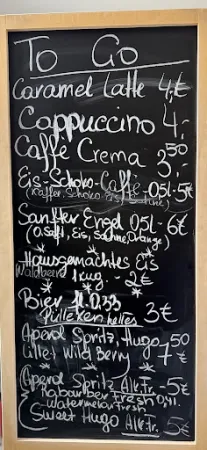 To Go
Caramel Latte 4,-€
Cappuccino 4,-
Caffè Crema 3,50
Eis-Schoko-Caffè 0,5l-5€
(Kaffee, Schoko, Eis, Sahne)
Sanfter Engel 0,5l-6€
(O.Saft, Eis, Sahne, Orange)
Hausgemachtes Eis
Waldbeere 1 Kug. - 2€
Bier 0,33 3€
helles
Aperol Spritz, Hugo 7,50
Lillet Wild Berry €
Aperol Spritz Alk.Fr. -5€
Rabarber Fresh 0,4l.
Watermelon Fresh
Sweet Hugo Alk.Fr. 5€